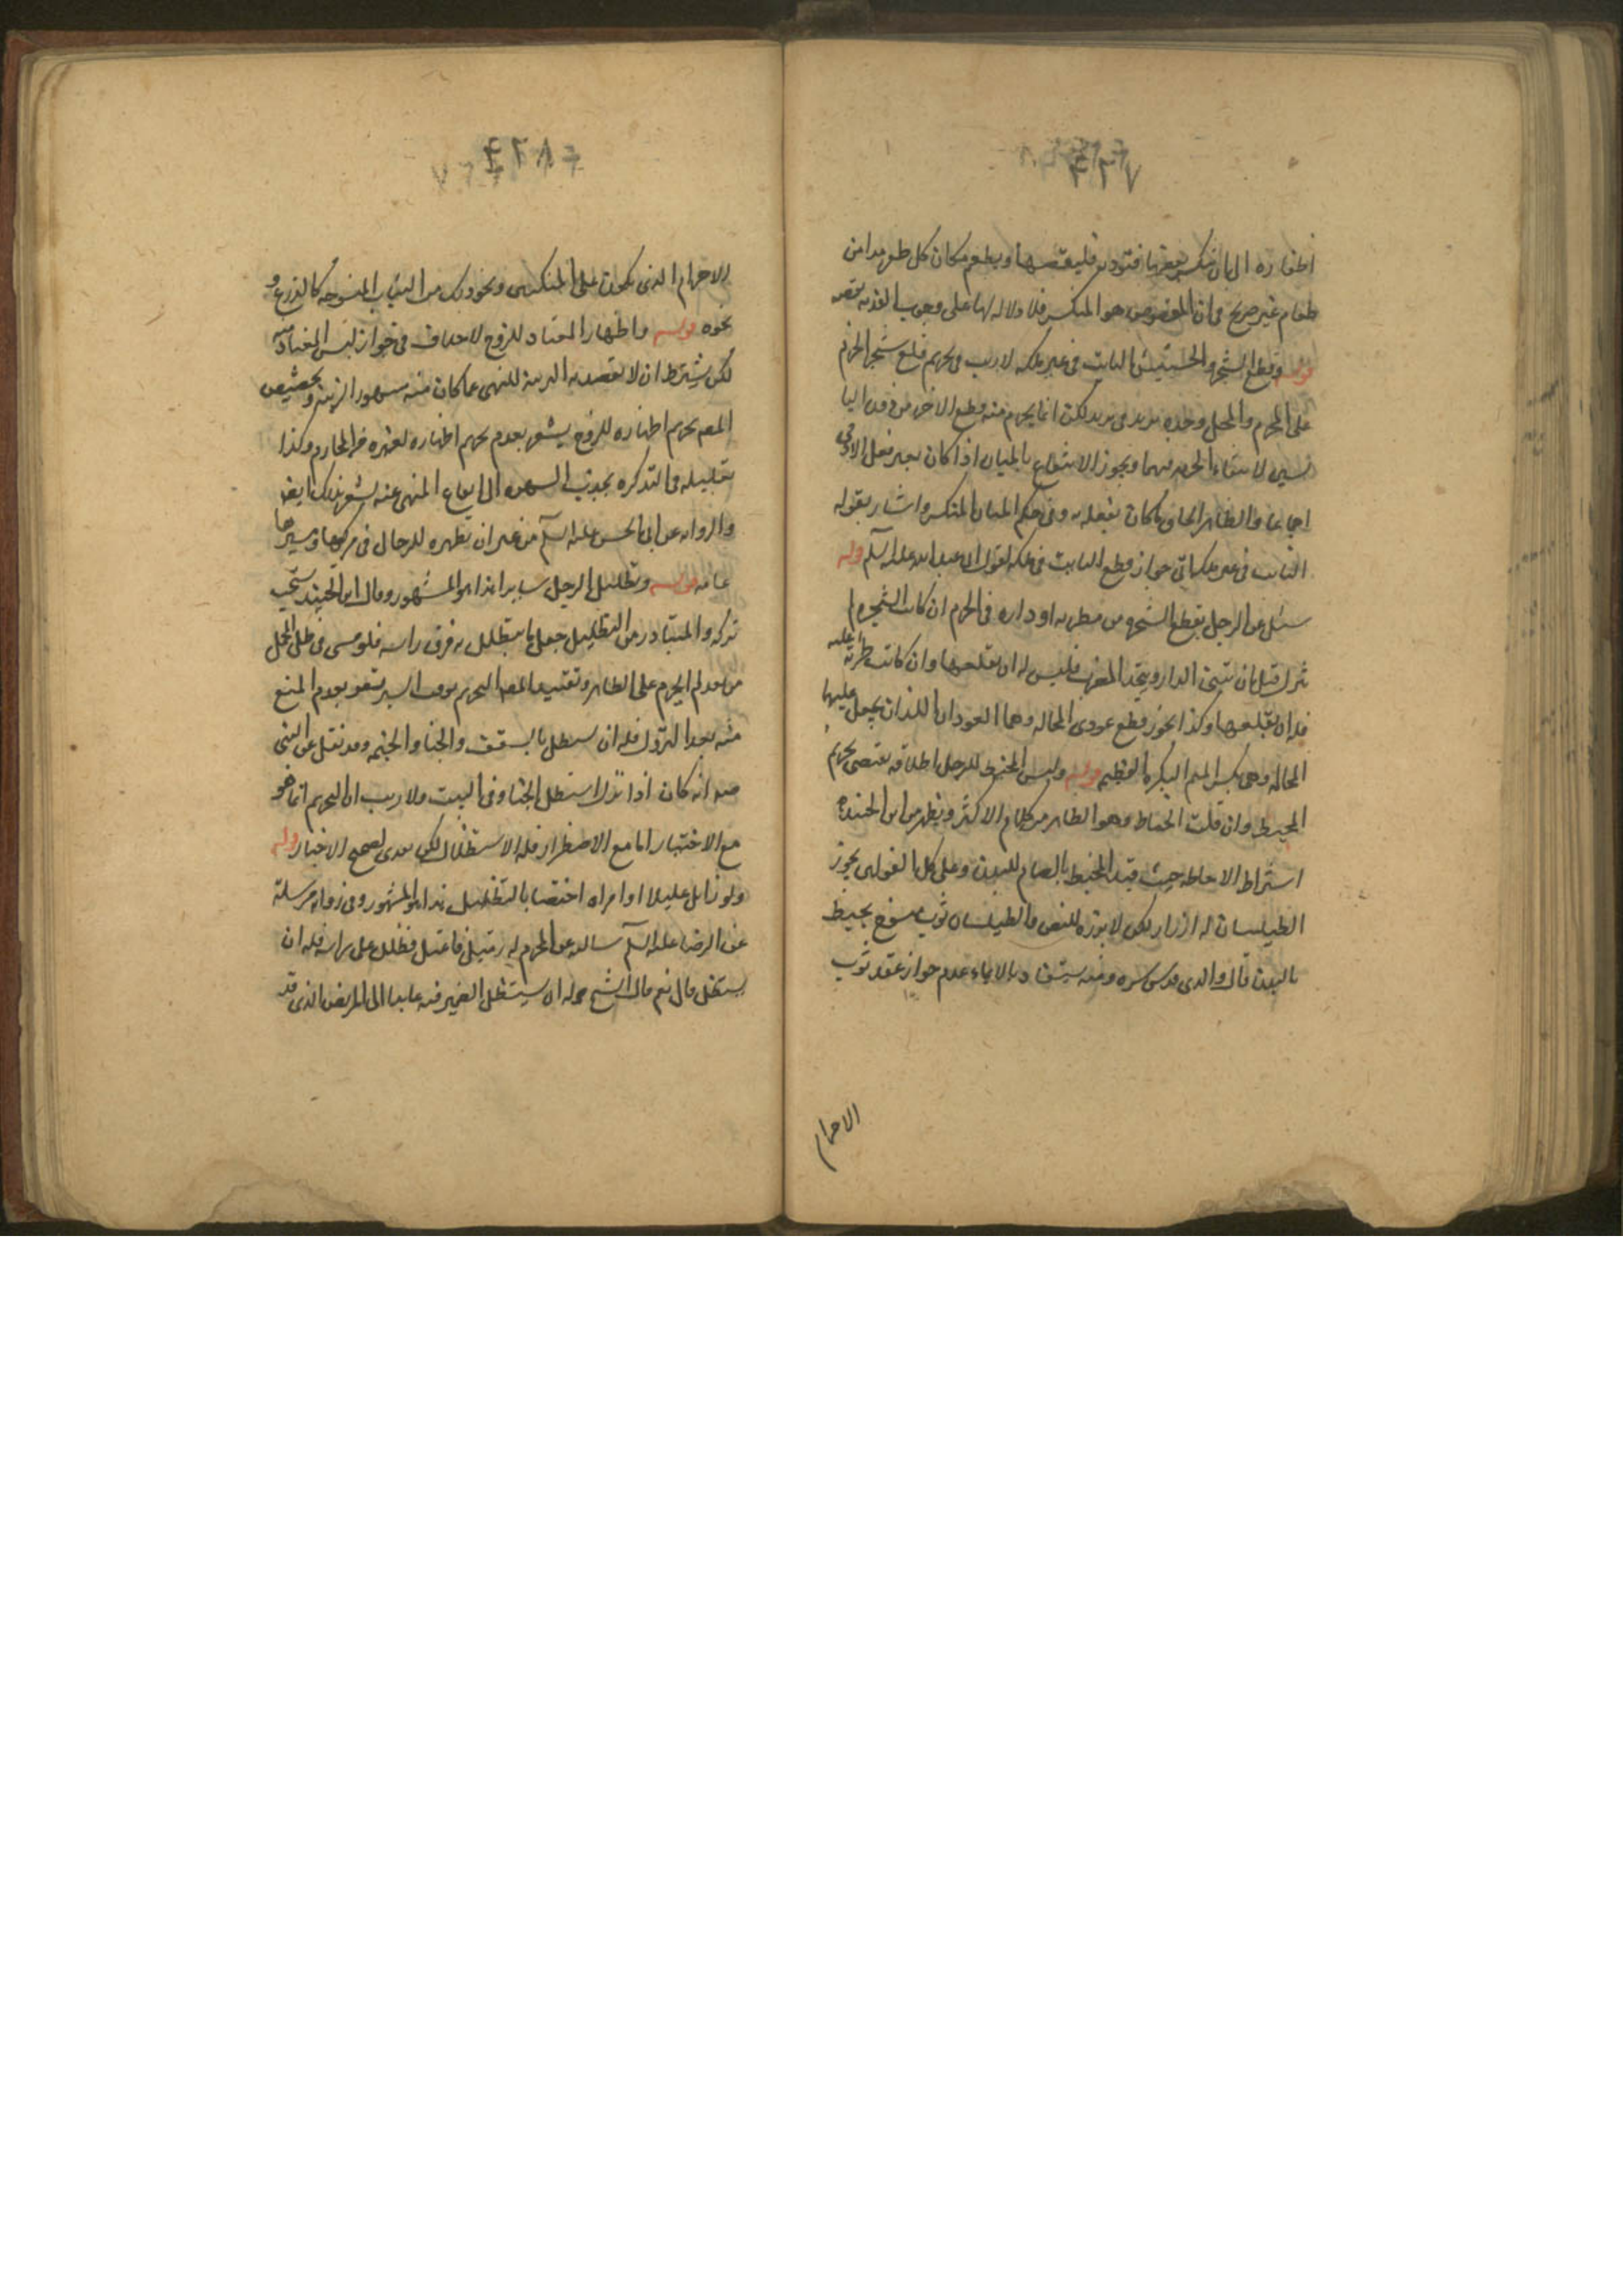 اظفاره الى ان ينكسر بعضها فتؤذيه فليقصها ويطعم مكان كل ظفر مدا من
طعام غير صريح في ان المقصوص هو المنكسر فلا دلالة لها على وجوب الفدية بقصه
قوله وقطع الشجر والحشيش النابت في غير ملكه لا ريب في تحريم قلع شجر الحرم
على المحرم والمحل وحده بريد في بريد لكن انما يحرم منه قطع الاخضر دون اليا
بسين لانتفاء الحرمة فيهما ويجوز الانتفاع بالميان اذا كان بغير فعل الادمي
اجماعا والظاهر الحاق ما كان بفعله به وفي حكم المنكسر واشار بقوله
النابت في غير ملكه الى جواز قطع النابت في ملكه لقول ابي عبد الله عليه السلم وله
سئل عن الرجل يقطع الشجرة من مضربه او داره في الحرم ان كانت الشجرة لم
تزل قبل ان تبنى الدار ويتخذ المضرب فليس له ان يقلعها وان كانت طرية عليه
فله ان يقلعها وكذا يجوز قطع عودي المحالة وهما العودان اللذان يجعل عليها
المحالة وهي بكسر الميم البكرة العظيمة قوله ولبس المخيط للرجل اطلاقه يقتضي تحريم
المخيط وان قلت الخياطة وهو الظاهر من كلام الاكثر ويظهر من ابن الجنيد
اشتراط الاحاطة حيث قيد المخيط بالضام للبدن وعلى كلا القولين يجوز
الطيلسان له ازرار لكن لا يزره للنص والطيلسان ثوب منسوج محيط
بالبدن قال والدي قدس سره ومنه يستفاد بالايماء عدم جواز عقد ثوب
الاحرام
الاحرام الذي يكون على المنكبين ونحو ذلك من الثياب المنسوجة كالدرع و
نحوه قوله واظهار المعتاد للزوج لا خلاف في جواز لبس المعتاد منه
لكن يشترط ان لا يقصد به الزينة للنهي عما كان منه مشهورا لزينة وتخصيص
المصنف تحريم اظهاره للزوج يشعر بعدم تحريم اظهاره لغيره من المحارم وكذا
تعليله في التذكرة بجذب الشهوة الى ايقاع المنهي عنه يشعر بذلك ايضا
والرواية عن ابي الحسن عليه السلم من غير ان تظهره للرجال في مركبها ومسيرها
عامة قوله وتظليل الرجل سايرا هذا هو المشهور وقال ابن الجنيد يستحب
تركه والمتبادر من التظليل جعل ما يتظلل به فوق راسه فلو مشى في ظل المحل
من بعد لم يحرم على الظاهر وتقييد المصنف التحريم بوقت السير يشعر بعدم المنع
منه بعد النزول فله ان يستظل بالسقف والخباء والخيمة وقد نقل عن النبي
صه انه كان اذا نزل استظل بالخباء وفي البيت ولا ريب ان التحريم انما هو
مع الاختيار اما مع الاضطرار فله الاستظلال لكن يفدي لصحيح الاخبار قوله
ولو زامل عليلا او امراة اختصا بالتظليل هذا هو المشهور وفي رواية مرسلة
عن الرضا عليه السلم سالته عن المحرم له زميل فاعتل فظلل على راسه فله ان
يستظل قال نعم قال الشيخ قوله ان يستظل الضمير فيه عايدا الى المريض الذي قد